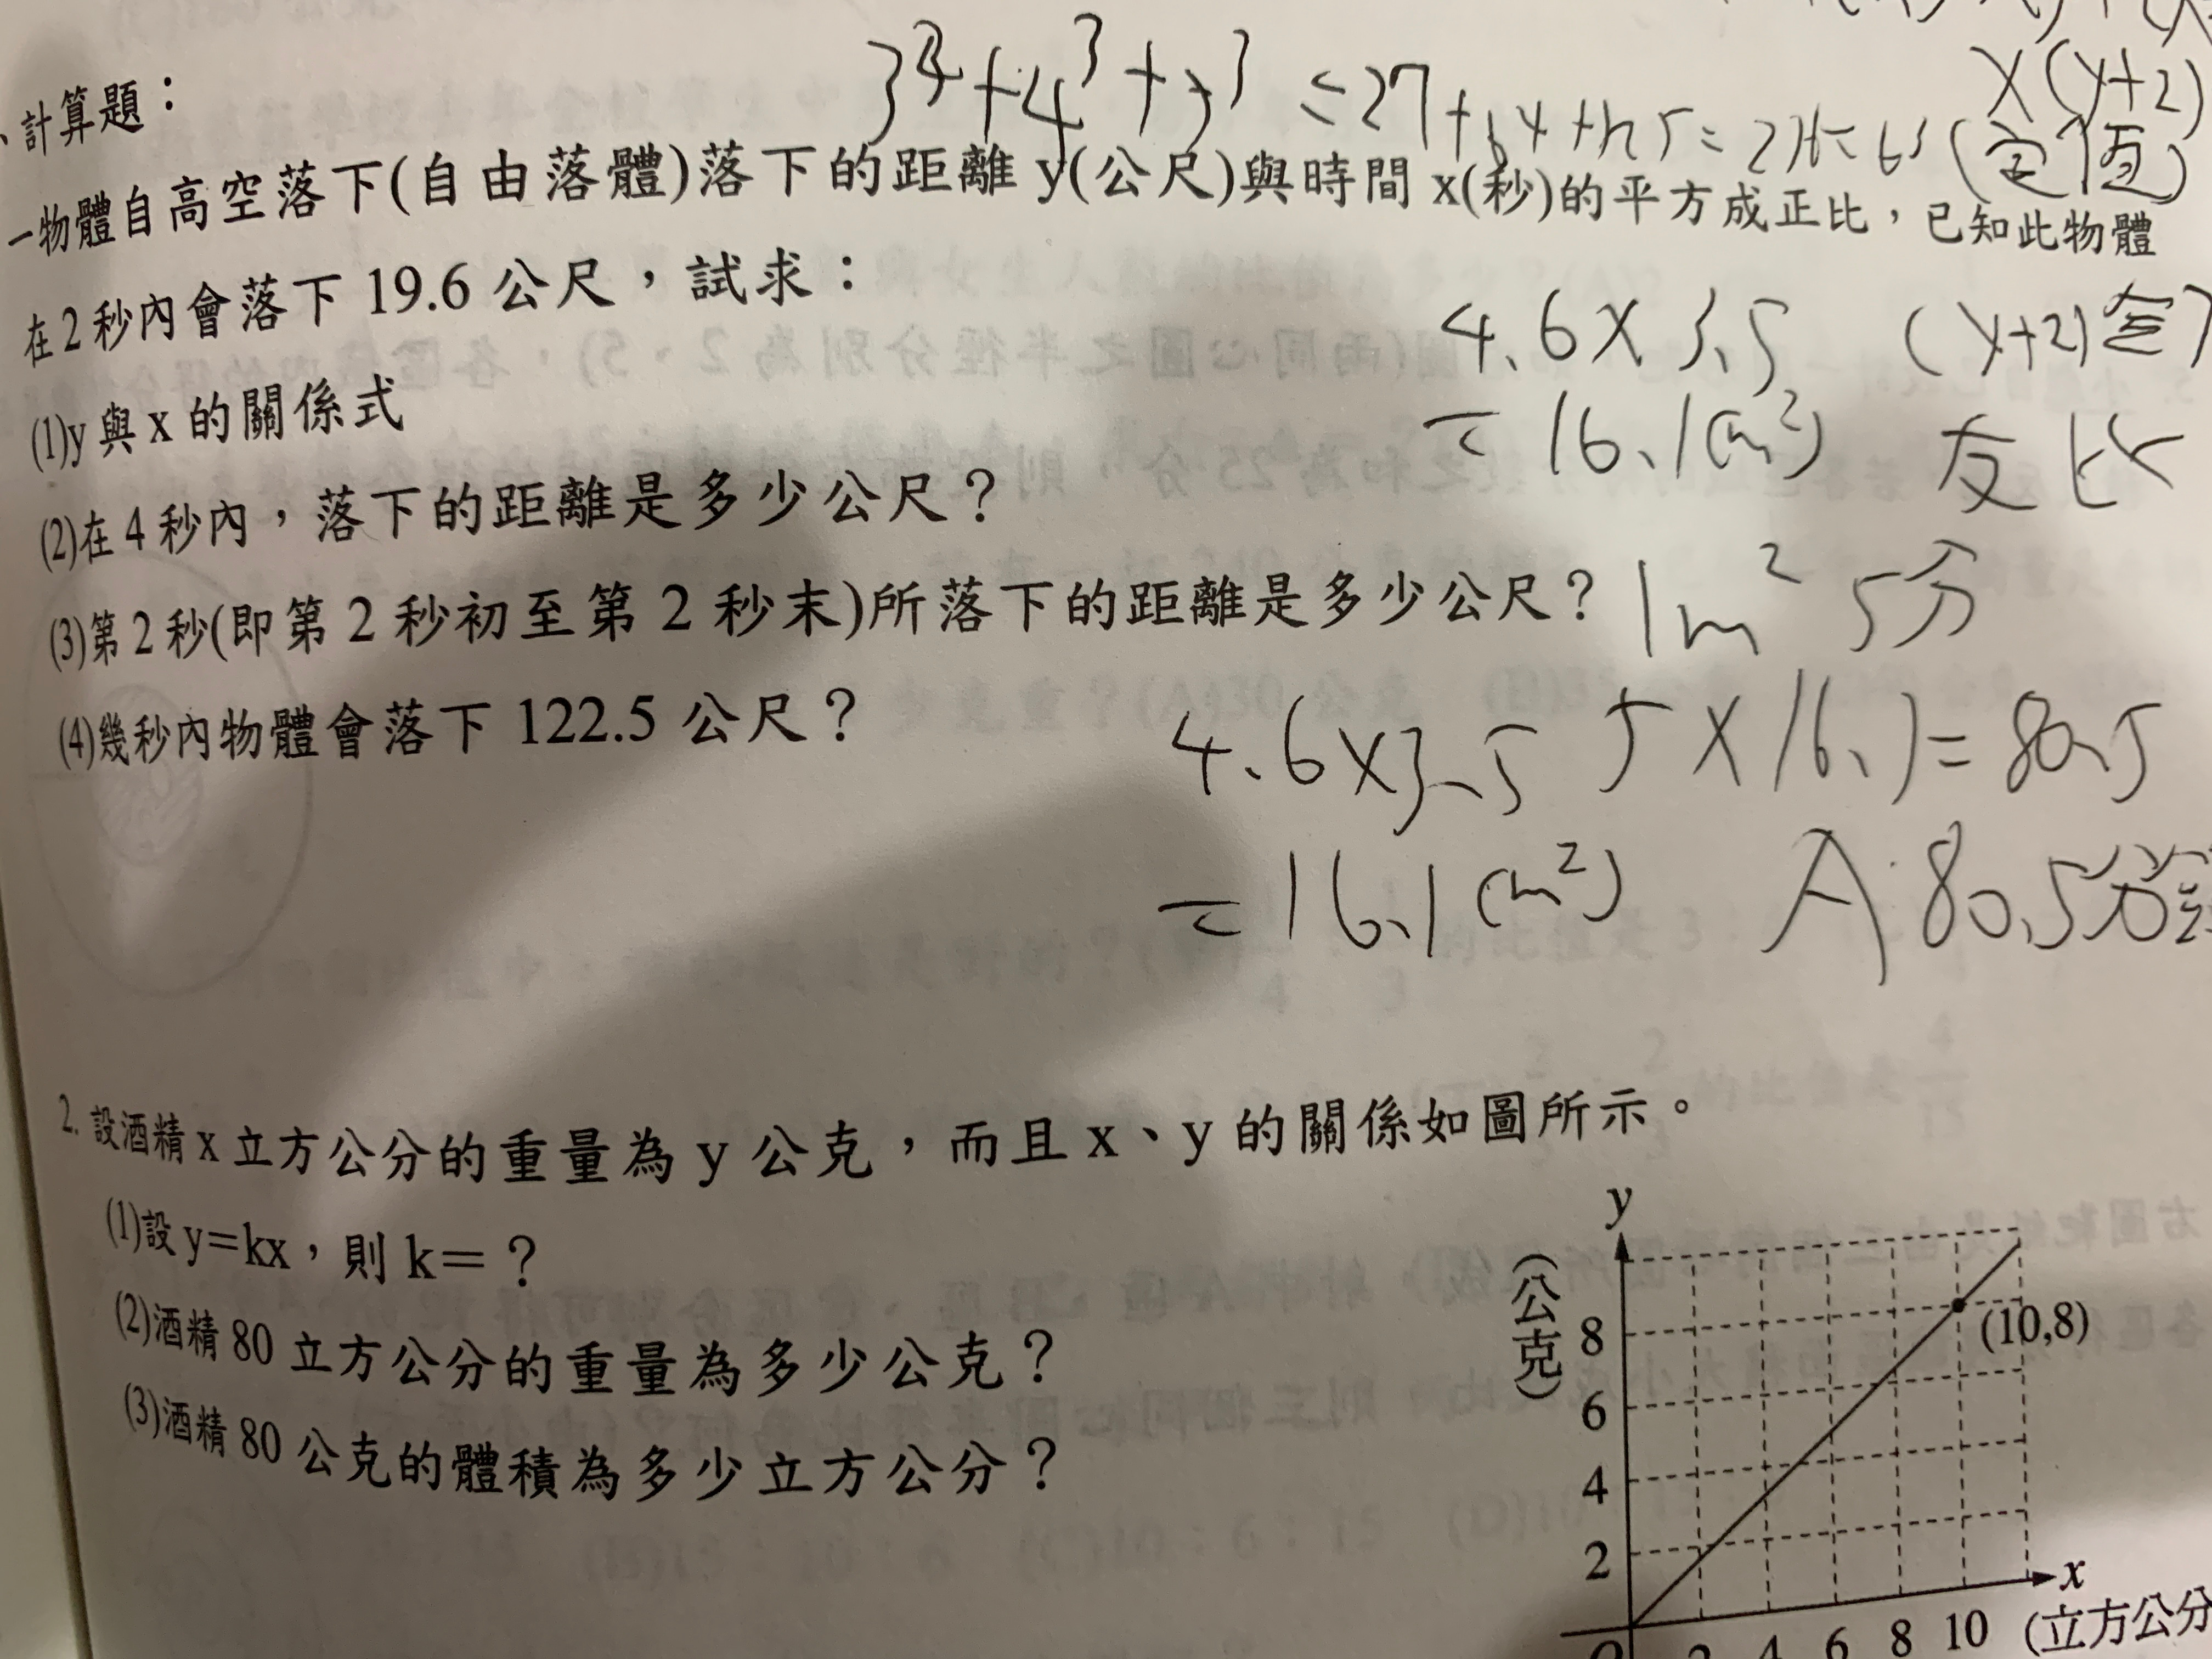 、計算題：
3³+4³+5³=27+64+125=216=6³
x(y+2)
(定值)
一物體自高空落下(自由落體)落下的距離 y(公尺)與時間 x(秒)的平方成正比，已知此物體
在2秒內會落下 19.6 公尺，試求：
4.6×3.5
(y+2)
(1)y 與 x 的關係式
=16.1(m²)
反比
(2)在 4 秒內，落下的距離是多少公尺？
1m² 5分
(3)第 2 秒(即第 2 秒初至第 2 秒末)所落下的距離是多少公尺？
(4)幾秒內物體會落下 122.5 公尺？
4.6×3.5 5×16.1=80.5
=16.1(m²) A:80.5分鐘
2. 設酒精 x 立方公分的重量為 y 公克，而且 x、y 的關係如圖所示。
(1)設 y=kx，則 k=？
(2)酒精 80 立方公分的重量為多少公克？
(3)酒精 80 公克的體積為多少立方公分？
y
(公克)
8
(10,8)
6
4
2
x
O 2 4 6 8 10 (立方公分